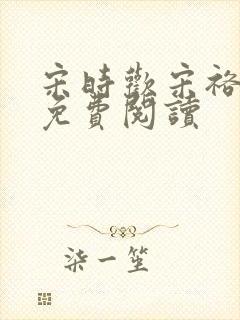 宋時歡宋裕
免費閱讀
柒一笙